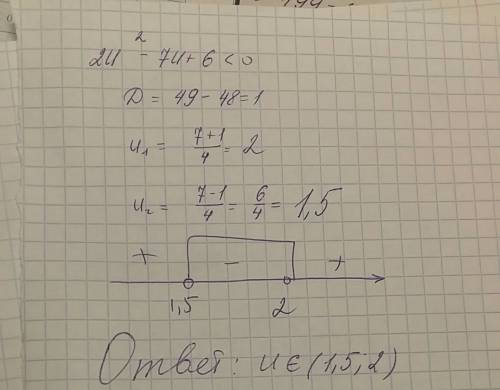 2u² - 7u + 6 < 0
D = 49 - 48 = 1
u₁ = 7+1/4 = 2
u₂ = 7-1/4 = 6/4 = 1,5
+ - +
1,5 2
Ответ: u ∈ (1,5; 2)